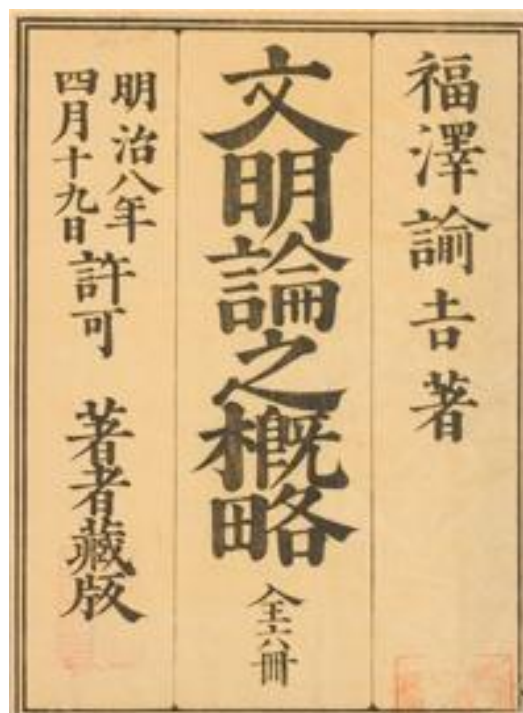 福澤諭吉著
文明論之概略
全六冊
明治八年
四月十九日
許可
著者藏版